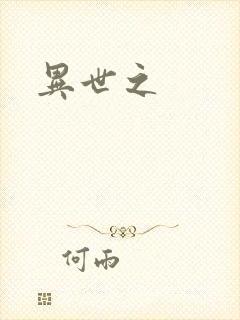 異世之
何雨